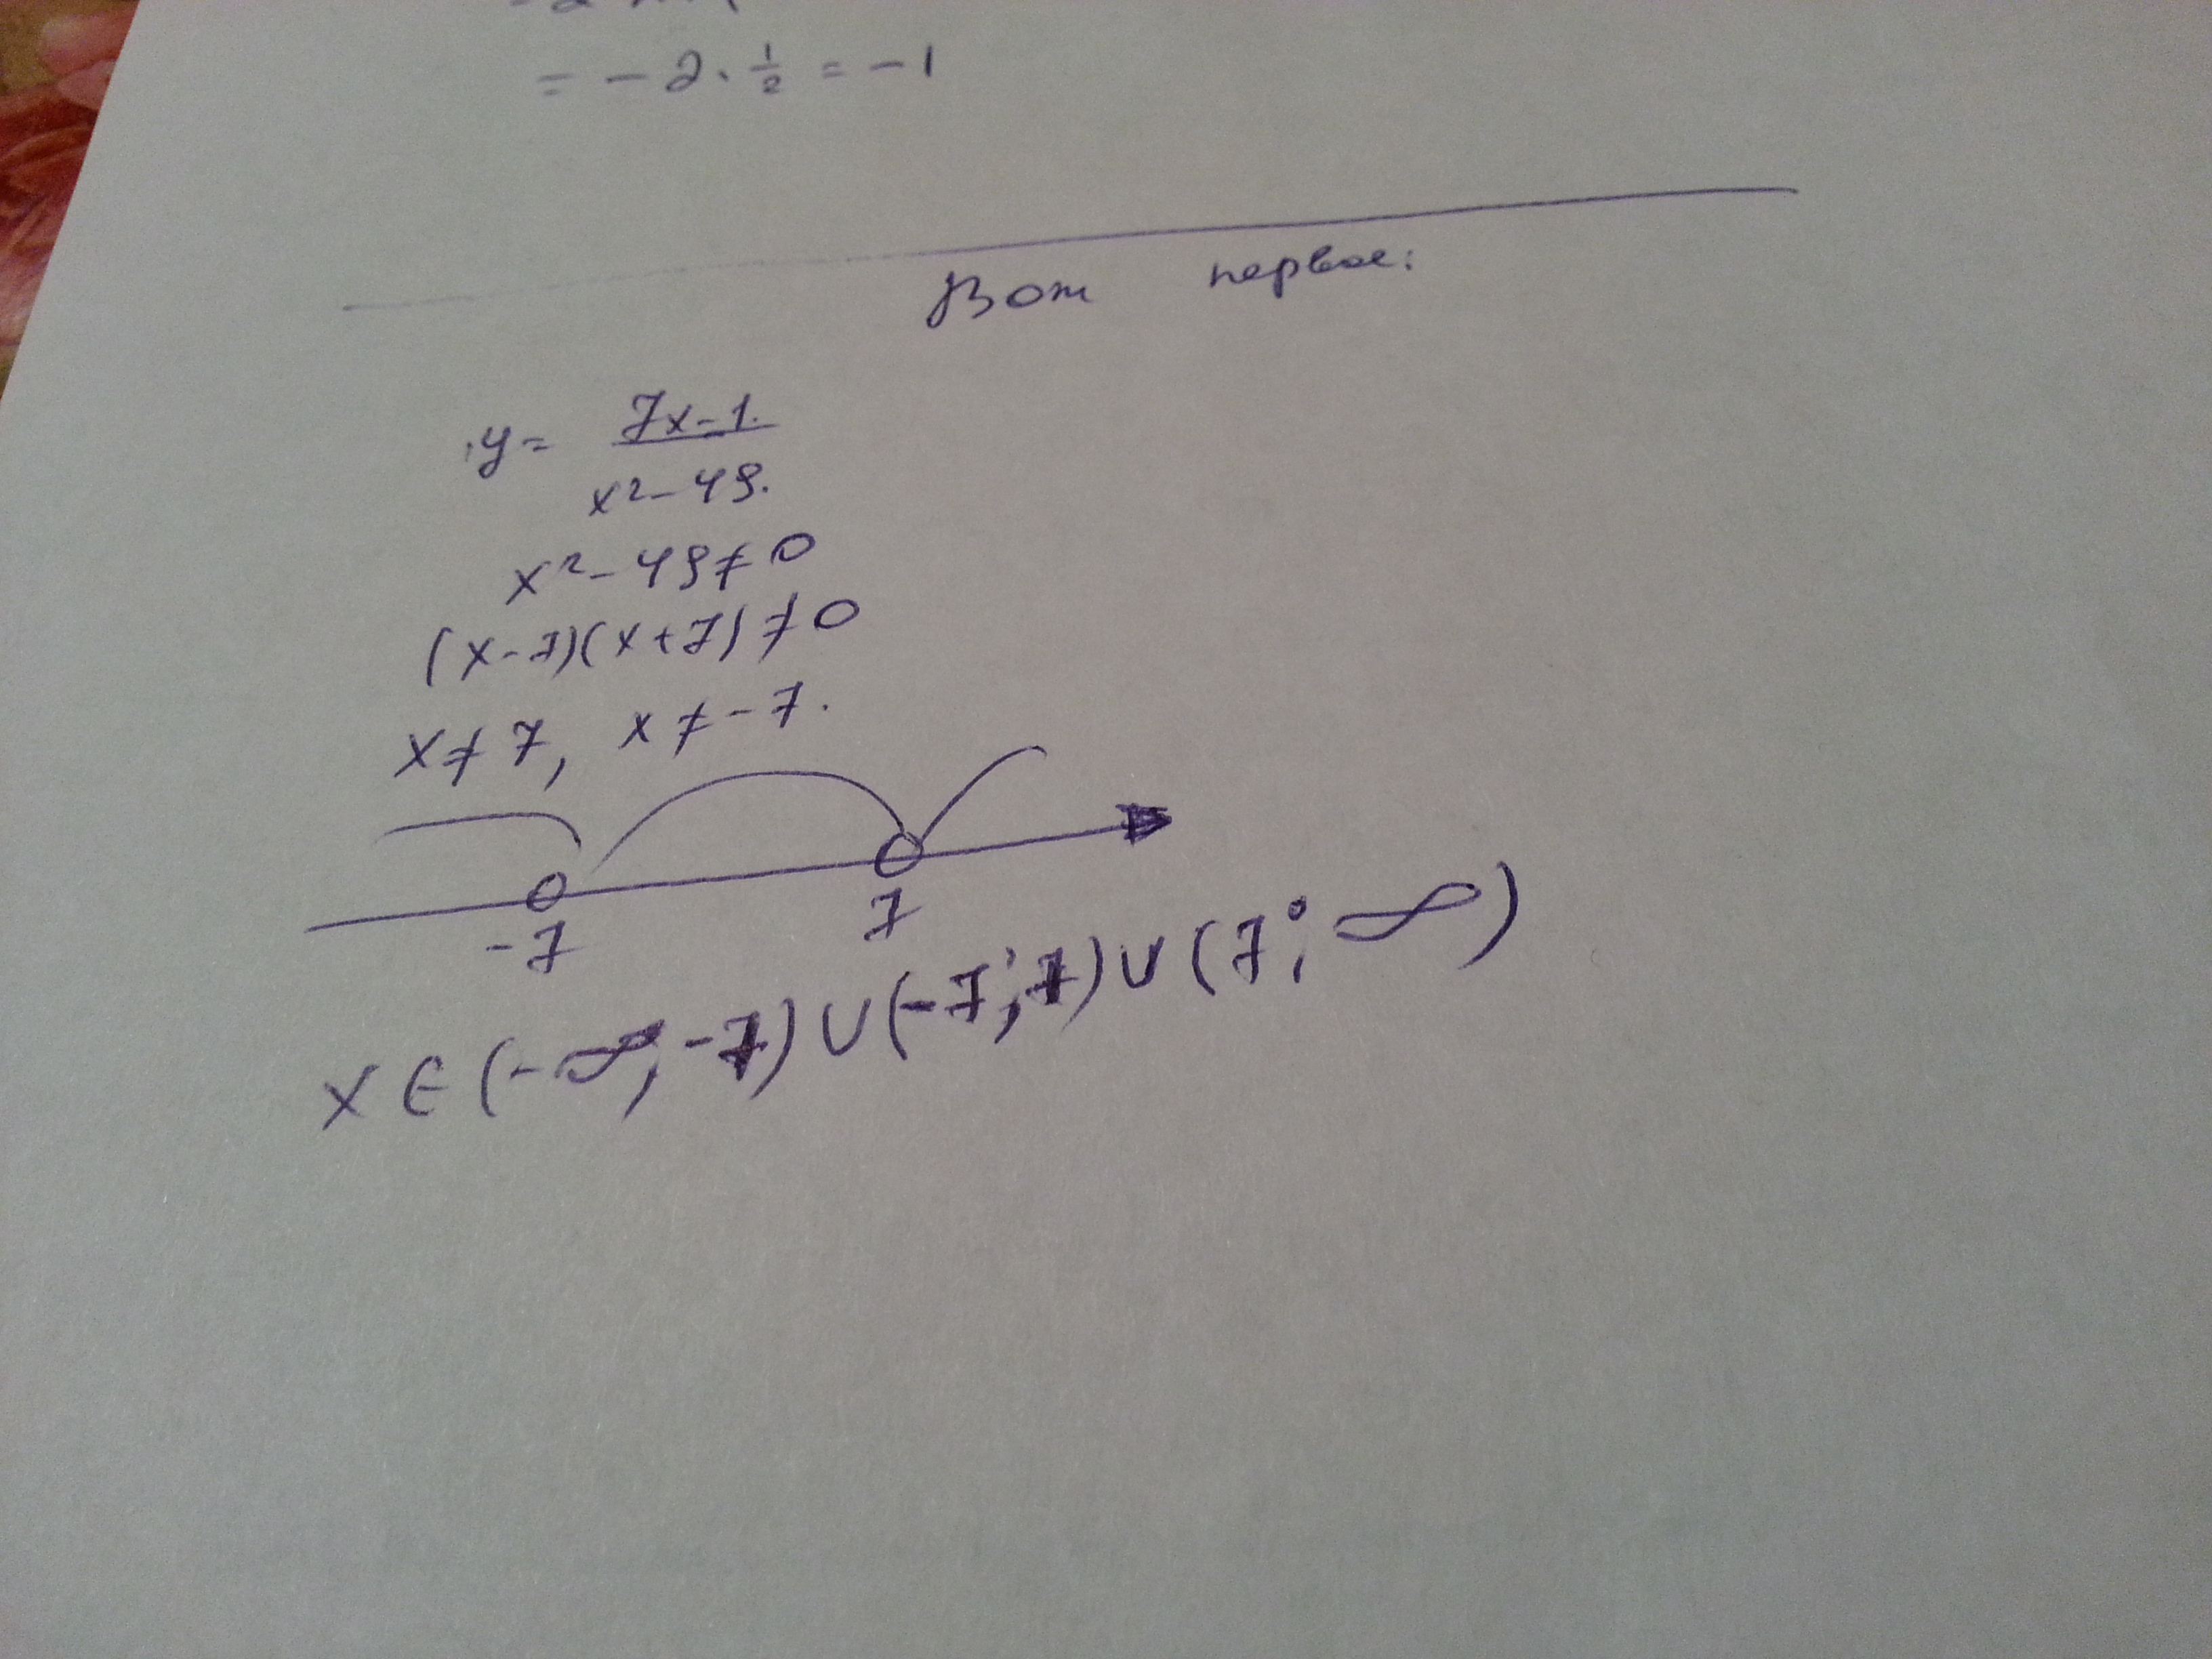 = -2 · 1/2 = -1
Вот первое:
y = 7x-1.
x²-49.
x²-49≠0
(x-7)(x+7)≠0
x≠7, x≠-7.
-7 7
x∈(-∞;-7)∪(-7;7)∪(7;∞)